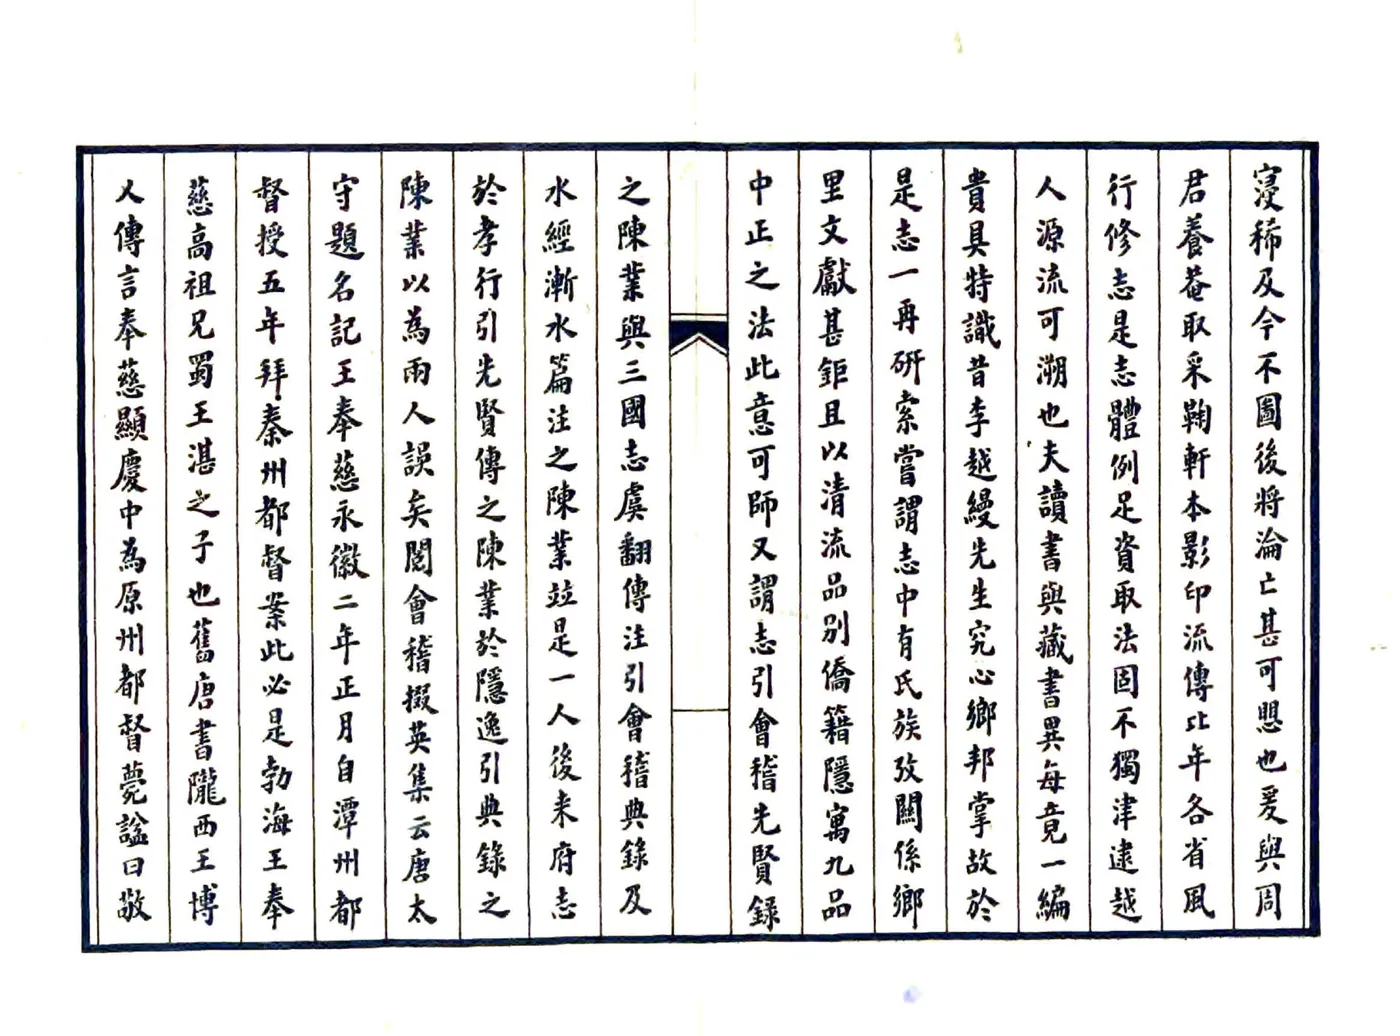 寖稀及今不圖後將淪亡甚可愳也爰與周
君養菴取采鞠軒本影印流傳比年各省風
行修志是志體例足資取法固不獨津逮越
人源流可溯也夫讀書與藏書異每竟一編
貴具特識昔李越縵先生究心鄉邦掌故於
是志一再研索嘗謂志中有氏族攷關係鄉
里文獻甚鉅且以清流品別僑籍隱寓九品
中正之法此意可師又謂志引會稽先賢錄
之陳業與三國志虞翻傳注引會稽典錄及
水經漸水篇注之陳業竝是一人後来府志
於孝行引先賢傳之陳業於隱逸引典錄之
陳業以為兩人誤矣閣會稽掇英集云唐太
守題名記王奉慈永徽二年正月自潭州都
督授五年拜秦州都督案此必是勃海王奉
慈高祖兄蜀王湛之子也舊唐書隴西王博
乂傳言奉慈顯慶中為原州都督薨諡曰敬